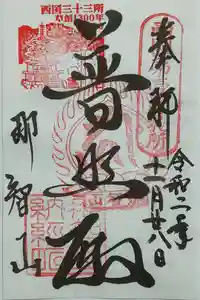 奉拝
令和二年
十一月廿八日
普照殿
西国三十三所
草創1300年
那智山